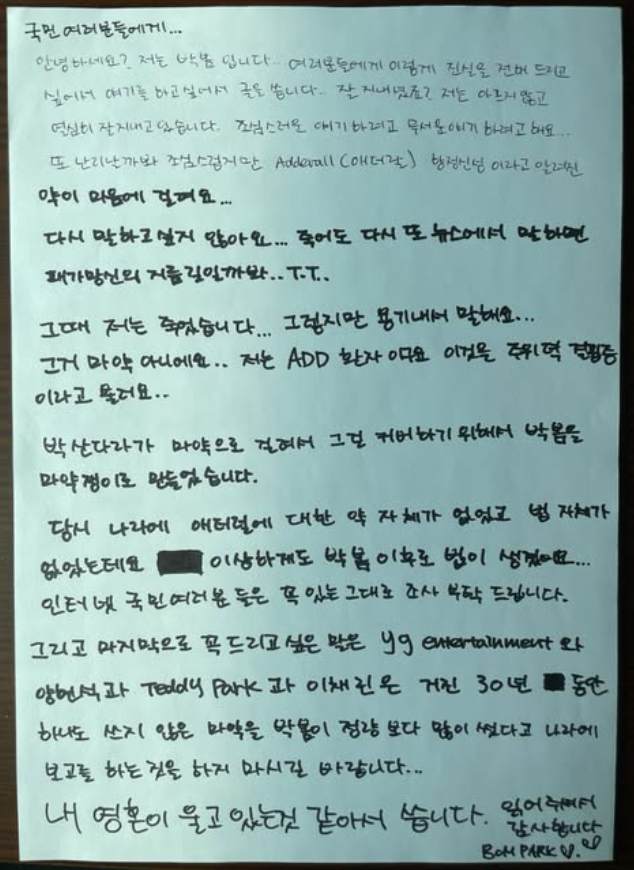 국민 여러분들에게...
안녕하세요? 저는 박봄 입니다.. 여러분들에게 이렇게 진실을 전해 드리고
싶어서 얘기를 하고싶어서 글을 씁니다.. 잘 지내셨죠? 저는 아프지 않고
열심히 잘지내고 있습니다. 조심스러운 얘기 하려고 무서운얘기 하려고 해요...
또 난리날까봐 조심스럽지만 Adderall (애더럴) 향정신성 이라고 알려진
약이 마음에 걸려요...
다시 말하고 싶지 않아요... 죽어도 다시 또 뉴스에서 말하면
패가망신의 지름길일까봐.. T.T..
그때 저는 죽었습니다... 그렇지만 용기내서 말해요...
그거 마약 아니에요.. 저는 ADD 환자 이구요 이것을 주위력 결핍증
이라고 불러요..
박산다라가 마약으로 걸려서 그걸 커버하기 위해서 박봄을
마약쟁이로 만들었습니다.
당시 나라에 애터럴에 대한 약 자체가 없었고 법 자체가
없었는데요 이상하게도 박봄 이후로 법이 생겼어요...
인터넷 국민여러분 들은 꼭 있는 그대로 조사 부탁 드립니다.
그리고 마지막으로 꼭 드리고 싶은 말은 yg entertainment 와
양현석과 Teddy Park 과 이채린은 거진 30년 동안
하나도 쓰지 않은 마약을 박봄이 정량 보다 많이 썼다고 나라에
보고를 하는것을 하지 마시길 바랍니다...
내 영혼이 울고 있는것 같아서 씁니다. 읽어 주셔서
감사합니다
BOM PARK ♡.♡